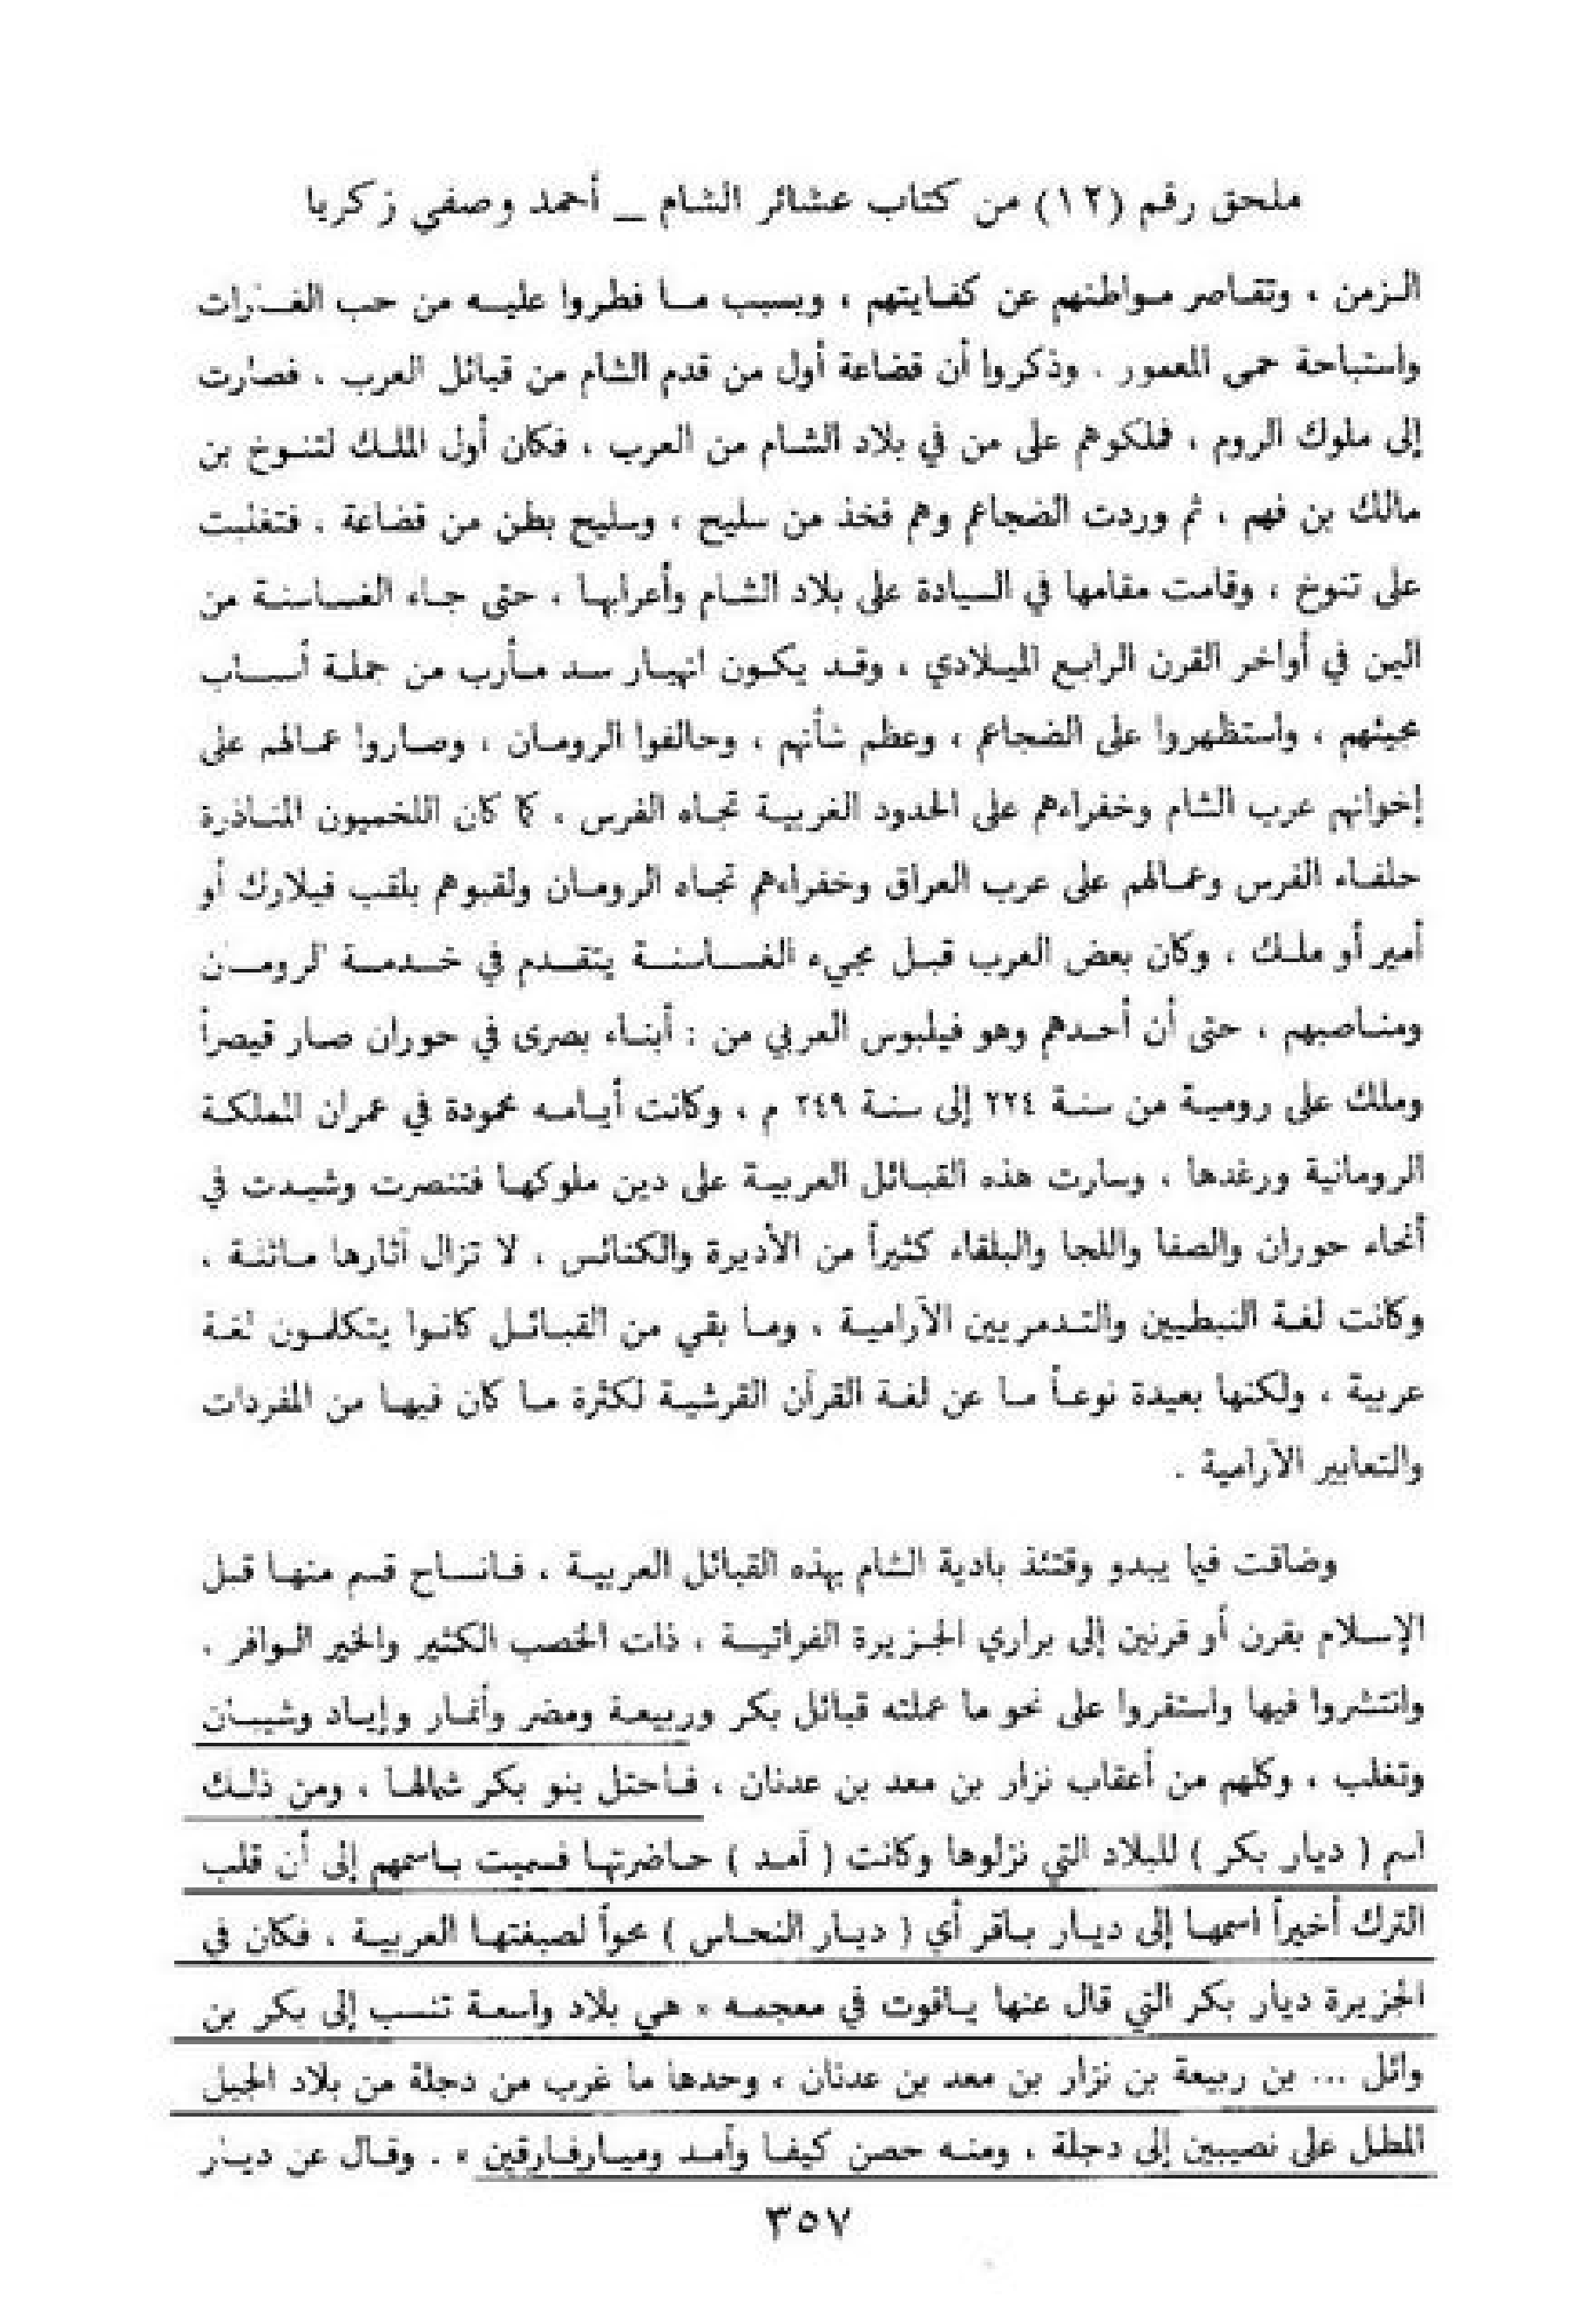 ملحق رقم (١٢) من كتاب عشائر الشام – أحمد وصفي زكريا
الزمن ، وتقاصر مواطنهم عن كفايتهم ، وبسبب ما فطروا عليه من حب الغزات
واستباحة حمى المعمور . وذكروا أن قضاعة أول من قدم الشام من قبائل العرب . فصارت
إلى ملوك الروم ، فملكوهم على من في بلاد الشام من العرب ، فكان أول الملك لتنوخ بن
مالك بن فهم ، ثم وردت الضجاعم وهم فخذ من سليح ، وسليح بطن من قضاعة . فتغلبت
على تنوخ ، وقامت مقامها في السيادة على بلاد الشام وأعرابها ، حتى جاء الغساسنة من
اليمن في أواخر القرن الرابع الميلادي ، وقد يكون انهيار سد مأرب من جملة أسباب
مجيئهم ، واستظهروا على الضجاعم ، وعظم شأنهم ، وحالفوا الرومان ، وصاروا عمالهم على
إخوانهم عرب الشام وخفراءهم على الحدود الغربية تجاه الفرس ، كما كان اللخميون المناذرة
حلفاء الفرس وعمالهم على عرب العراق وخفراءهم تجاه الرومان ولقبوهم بلقب فيلارك أو
أمير أو ملك ، وكان بعض العرب قبل مجيء الغساسنة يتقدم في خدمة الرومان
ومناصبهم ، حتى أن أحدهم وهو فيلبوس العربي من : أبناء بصرى في حوران صار قيصراً
وملك على رومية من سنة ٢٢٤ إلى سنة ٢٤٩ م ، وكانت أيامه محمودة في عمران المملكة
الرومانية ورغدها ، وسارت هذه القبائل العربية على دين ملوكها فتنصرت وشيدت في
أنحاء حوران والصفا واللجا والبلقاء كثيراً من الأديرة والكنائس ، لا تزال آثارها ماثلة ،
وكانت لغة النبطيين والتدمريين الآرامية ، وما بقي من القبائل كانوا يتكلمون لغة
عربية ، ولكنها بعيدة نوعاً ما عن لغة القرآن القرشية لكثرة ما كان فيها من المفردات
والتعابير الآرامية .
وضاقت فيما يبدو وقتئذ بادية الشام بهذه القبائل العربية ، فانساح قسم منها قبل
الإسلام بقرن أو قرنين إلى براري الجزيرة الفراتية ، ذات الخصب الكثير والخير الوافر ،
وانتشروا فيها واستقروا على نحو ما عملته قبائل بكر وربيعة ومضر وأنمار وإياد وشيبان
وتغلب ، وكلهم من أعقاب نزار بن معد بن عدنان ، فاحتل بنو بكر شمالها ، ومن ذلك
اسم ( ديار بكر ) للبلاد التي نزلوها وكانت ( آمد ) حاضرتها فسميت باسمهم إلى أن قلب
الترك أخيراً اسمها إلى ديار باقر أي ( ديار النحاس ) محواً لصبغتها العربية ، فكان في
الجزيرة ديار بكر التي قال عنها ياقوت في معجمه « هي بلاد واسعة تنسب إلى بكر بن
وائل ... بن ربيعة بن نزار بن معد بن عدنان ، وحدها ما غرب من دجلة من بلاد الجبل
المطل على نصيبين إلى دجلة ، ومنه حصن كيفا وآمد وميارفارقين » . وقال عن ديار
٣٥٧